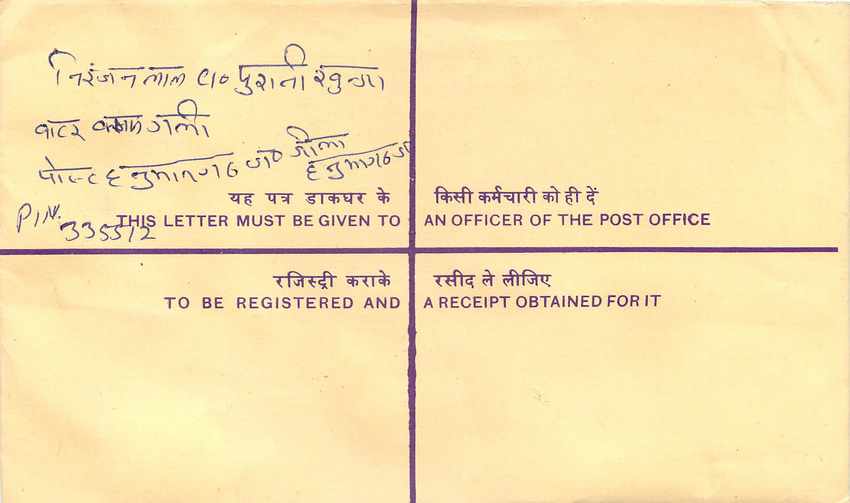 निरंजन लाल C/० पुरानी
गली
पोस्ट हनुमानगढ ज० जीला
हनुमानगढ ज०
PIN. 335512
यह पत्र डाकघर के किसी कर्मचारी को ही दें
THIS LETTER MUST BE GIVEN TO AN OFFICER OF THE POST OFFICE
रजिस्ट्री कराके रसीद ले लीजिए
TO BE REGISTERED AND A RECEIPT OBTAINED FOR IT